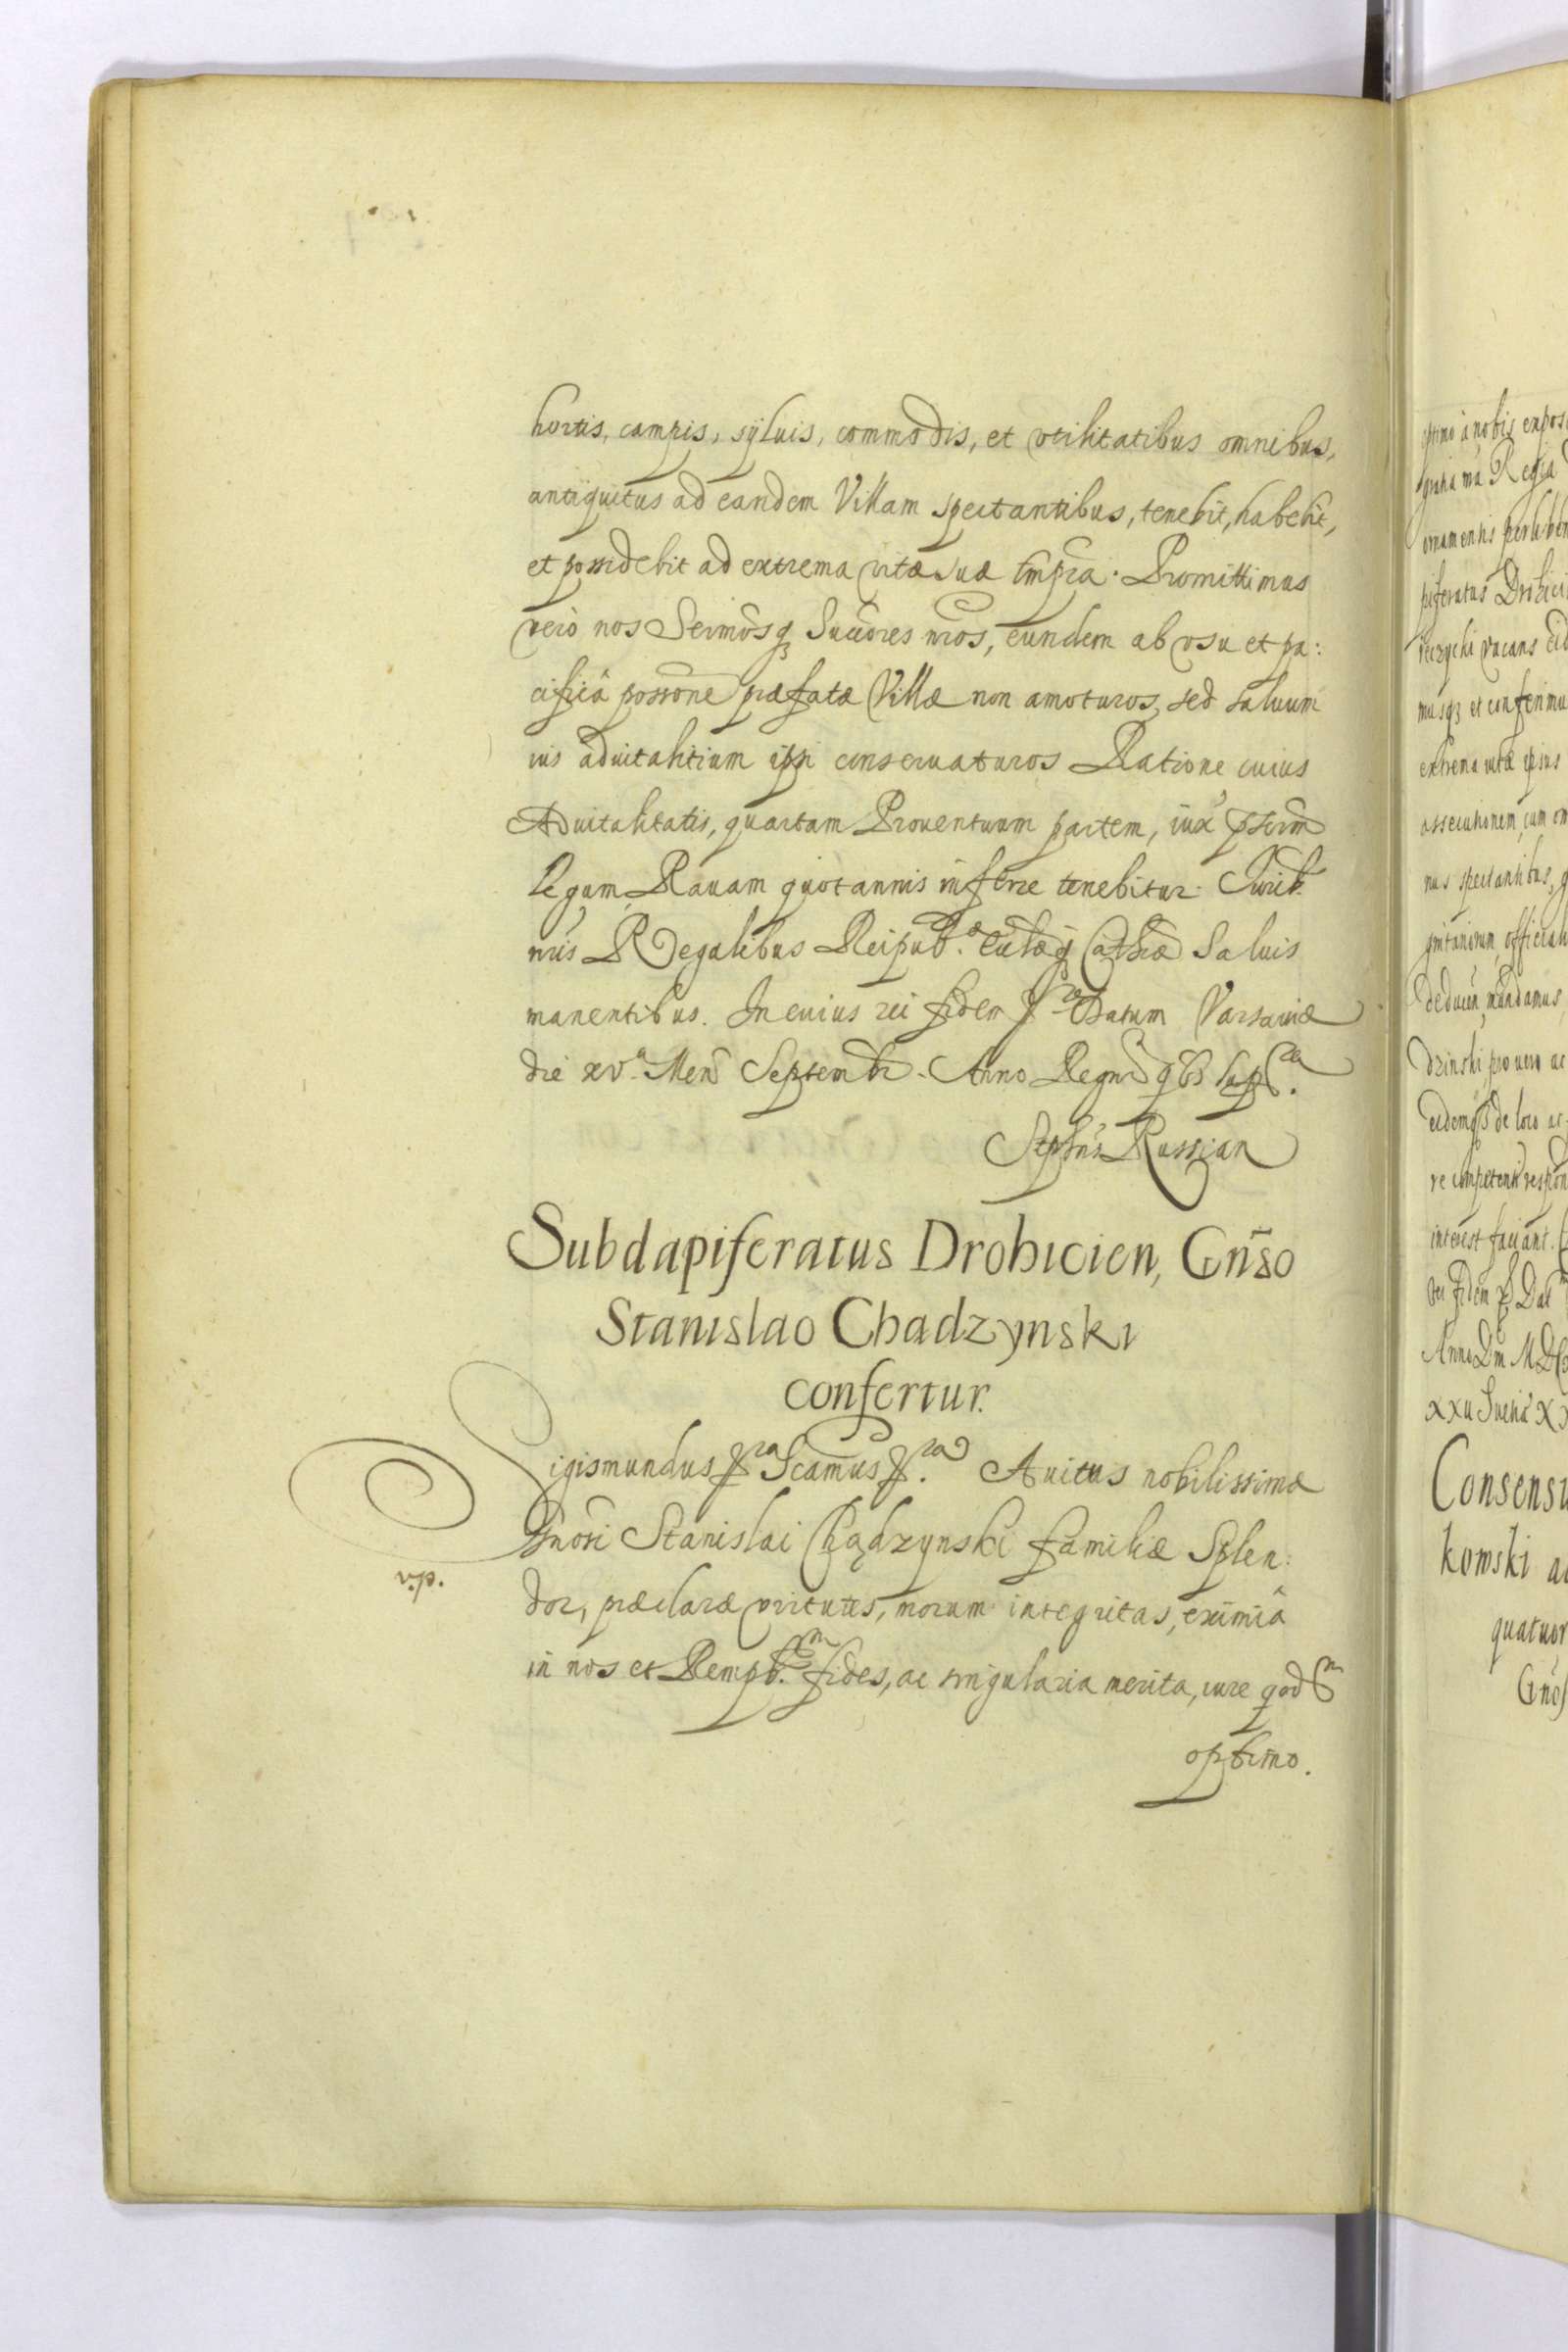 hortis, campis, sÿluis, commodis, et vtilitatibus omnibus,
antiquitus ad eandem Villam spectantibus, tenebit, habebit,
et possidebit ad extrema vitæ suæ tempra. Promittimus
verò nos Sermosq̃ Succores nros, eundem ab vsu et pa:
cificâ possone præfatæ Villæ non amoturos, sed saluum
ius aduitalitium ipsi conseruaturos Ratione cuius
Aduitalitatis, quartam Prouentuum partem, iuxa pscrm
Legum, Rauam quotannis inferre tenebitur. Jurib.
nris Regalibus Reipub. Ecclæq̃ Cathcæ Saluis
manentibus. In cuius rei fidem Datum Varsauiæ
die xv. Mens Septembr. Anno Regnor qbs sup.
Stephns Russian
Subdapiferatus Drohicien, Gnso
Stanislao Chadzynski
confertur.
Sigismundus Scamus Auitus nobilissimæ
Gnosi Stanislai Chądzynski familiæ Splen:
dor, præclaræ virtutes, morum integritas, eximiâ
in nos et Rempb. fides, ac singularia merita, iure qod
optimo.
optimo à nobis expos
gratia nra Regia
ornamentis
piferatus Drohici
vacans eid
musq3 et conferimu
extrema vitæ ipsius
assecutionem, cum om
nus spectantibus, q
officiali
deducen, mandamus
dzinski pro vero ac
de loco ac
re competenti respon
interest faciant.
rei fidem Dat
Anno Dni MDC
xxii Sueiæ XX
Consensu
kowski a
quatuor
Gnos